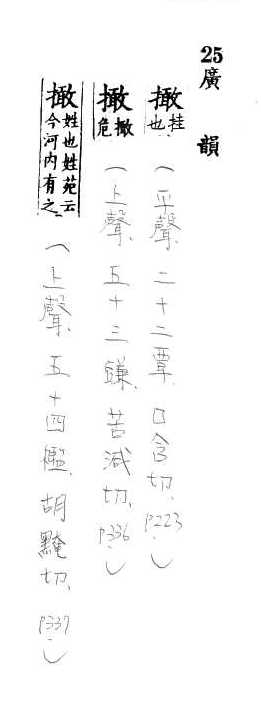 25廣韻
撖挂也（平聲、二十二覃、口含切、P.223）
撖撖危（上聲、五十三豏、苦減切、P.336）
撖姓也姓苑云今河内有之（上聲、五十四檻、胡黤切、P.337）